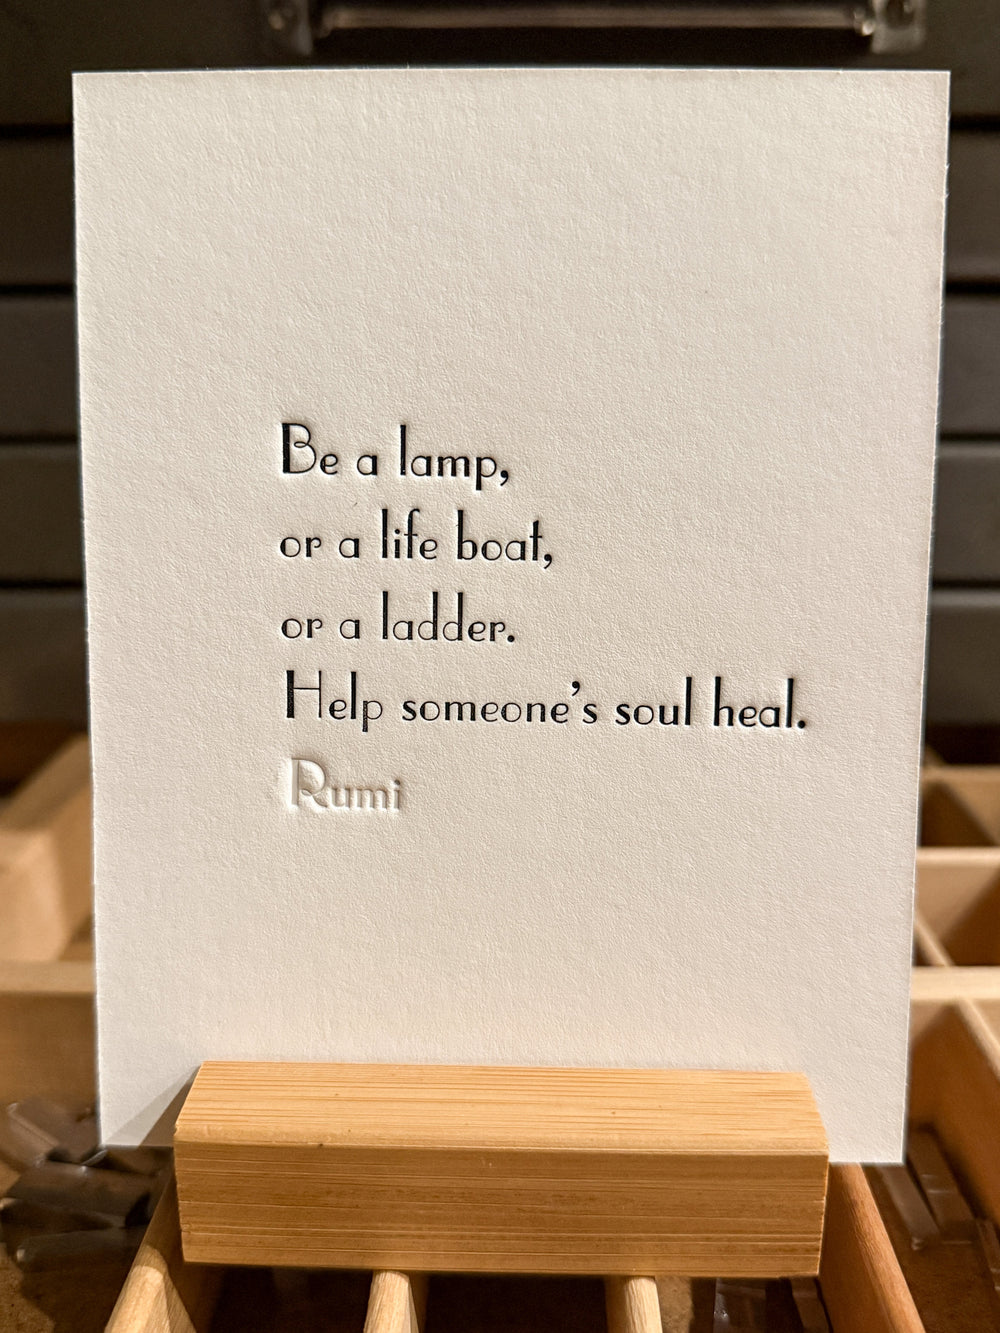 Be a lamp,
or a life boat,
or a ladder.
Help someone's soul heal.
Rumi